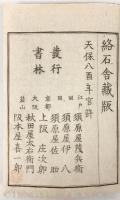 絡石舎藏版
天保八酉年官許
江戸
須原屋茂兵衛
須原屋伊八
須原屋佐助
京都
阪庄次郎
大阪
秋田屋太右衛門
岸山
阪本屋喜一郎
發行
書林